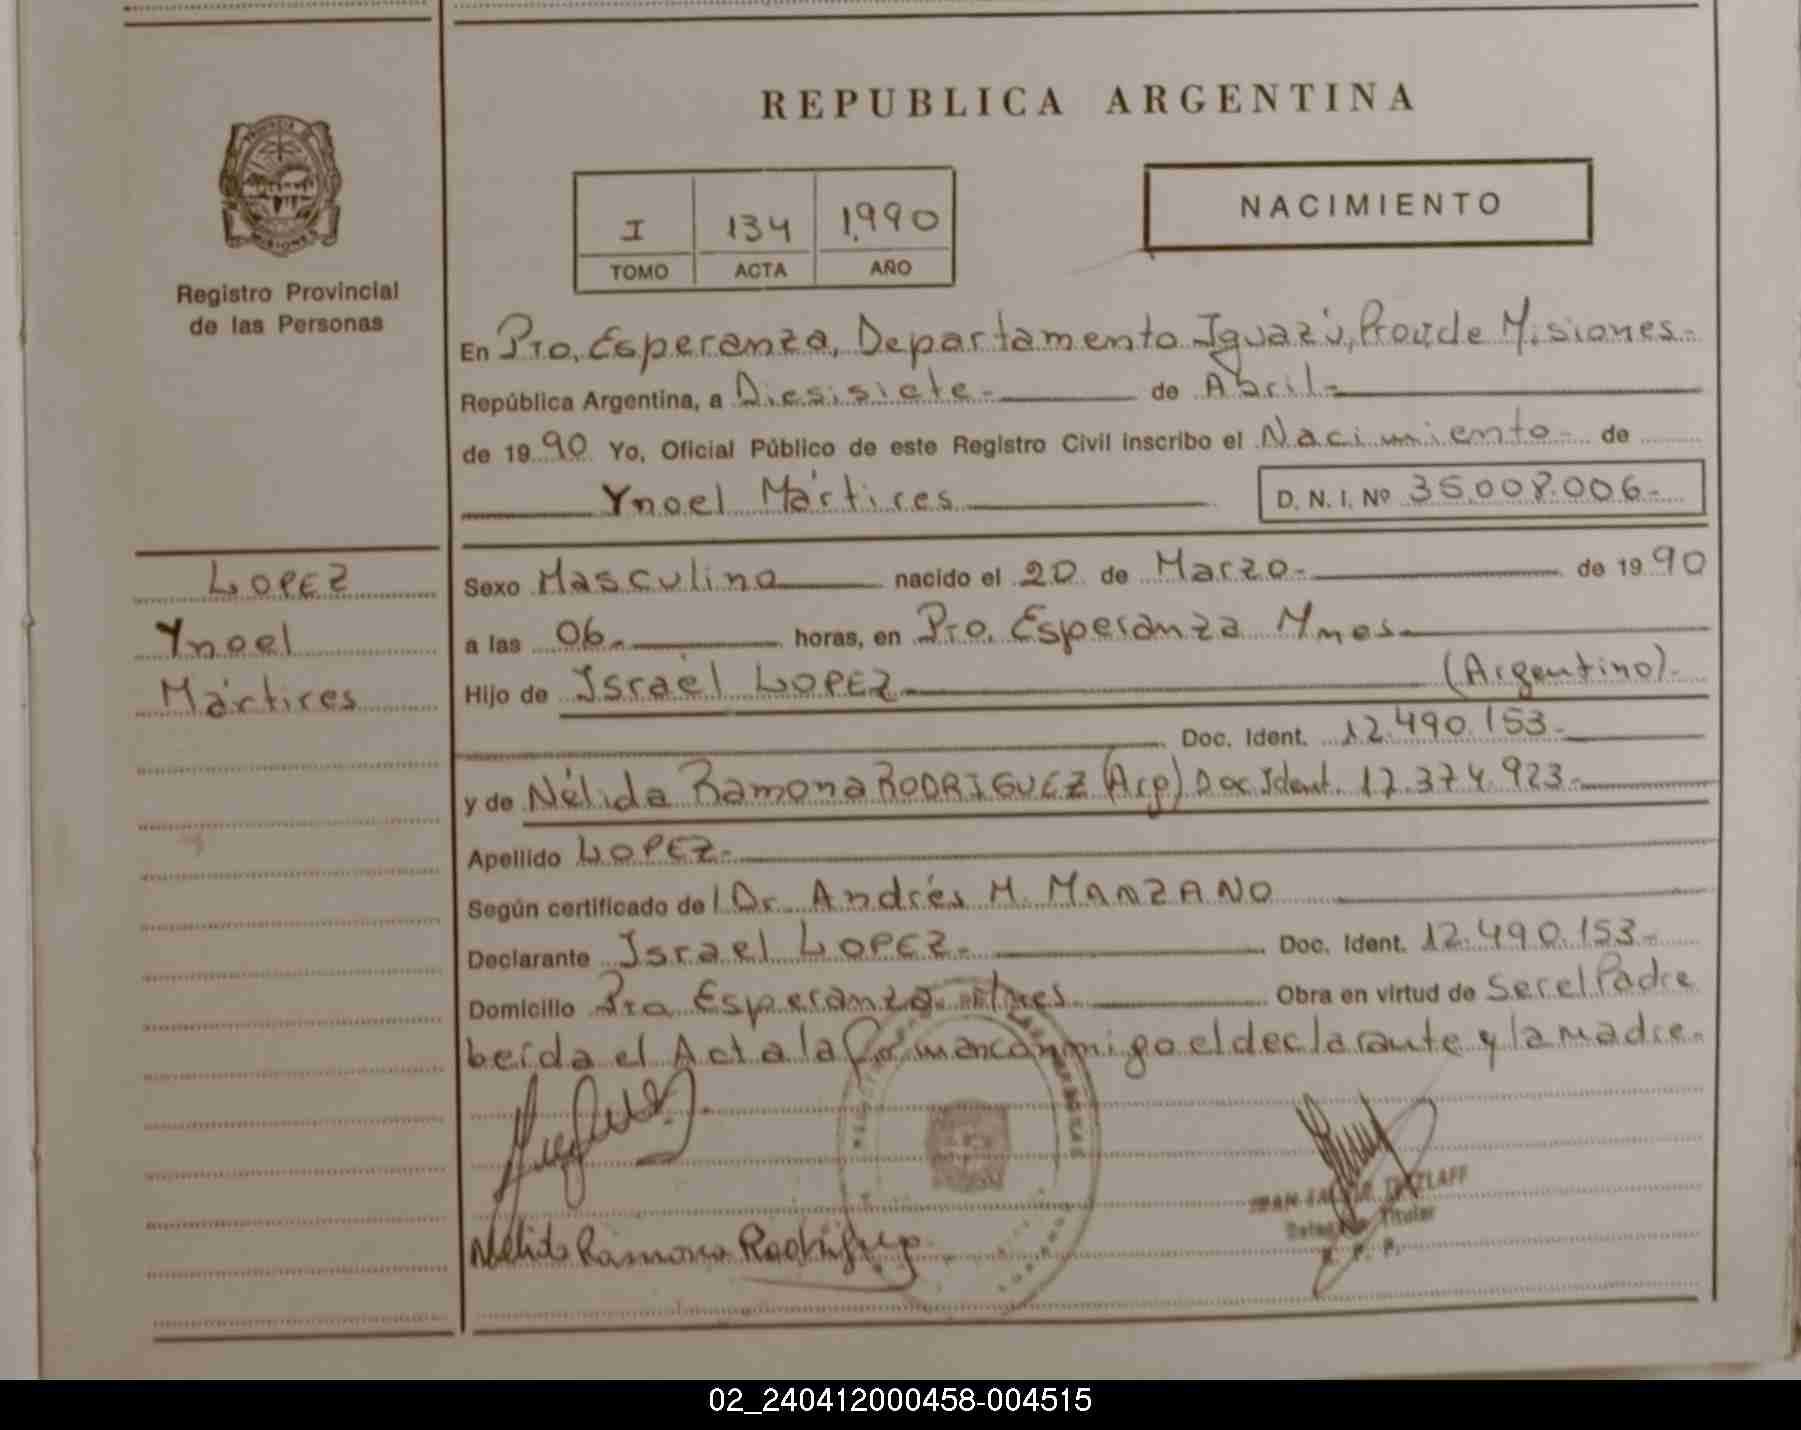 REPUBLICA ARGENTINA
PROVINCIA DE
MISIONES
Registro Provincial
de las Personas
I 134 1.990
TOMO ACTA AÑO
NACIMIENTO
En Pto. Esperanza, Departamento Iguazú, Prov. de Misiones.-
República Argentina, a Diesisiete.- de Abril.-
de 1990 Yo, Oficial Público de este Registro Civil inscribo el Nacimiento- de
Ynoel Mártires
D. N. I. Nº 35.008.006.-
LOPEZ
Ynoel
Mártires
Sexo Masculino nacido el 20 de Marzo.- de 1990
a las 06.- horas, en Pto. Esperanza Mnes.-
Hijo de Israel LOPEZ (Argentino).-
Doc. Ident. 12.490.153.-
y de Nélida Ramona RODRIGUEZ (Arg) Doc Ident. 12.374.923.-
Apellido LOPEZ.-
Según certificado de Dr. Andrés M. MANZANO
Declarante Israel LOPEZ.- Doc. Ident. 12.490.153.-
Domicilio Pto Esperanza Mnes Obra en virtud de Ser el Padre
Leída el Acta la firman conmigo el declarante y la madre.-
TETZLAFF
Titular
R. P. P.
Nelida Ramona Rodriguez
02_240412000458-004515